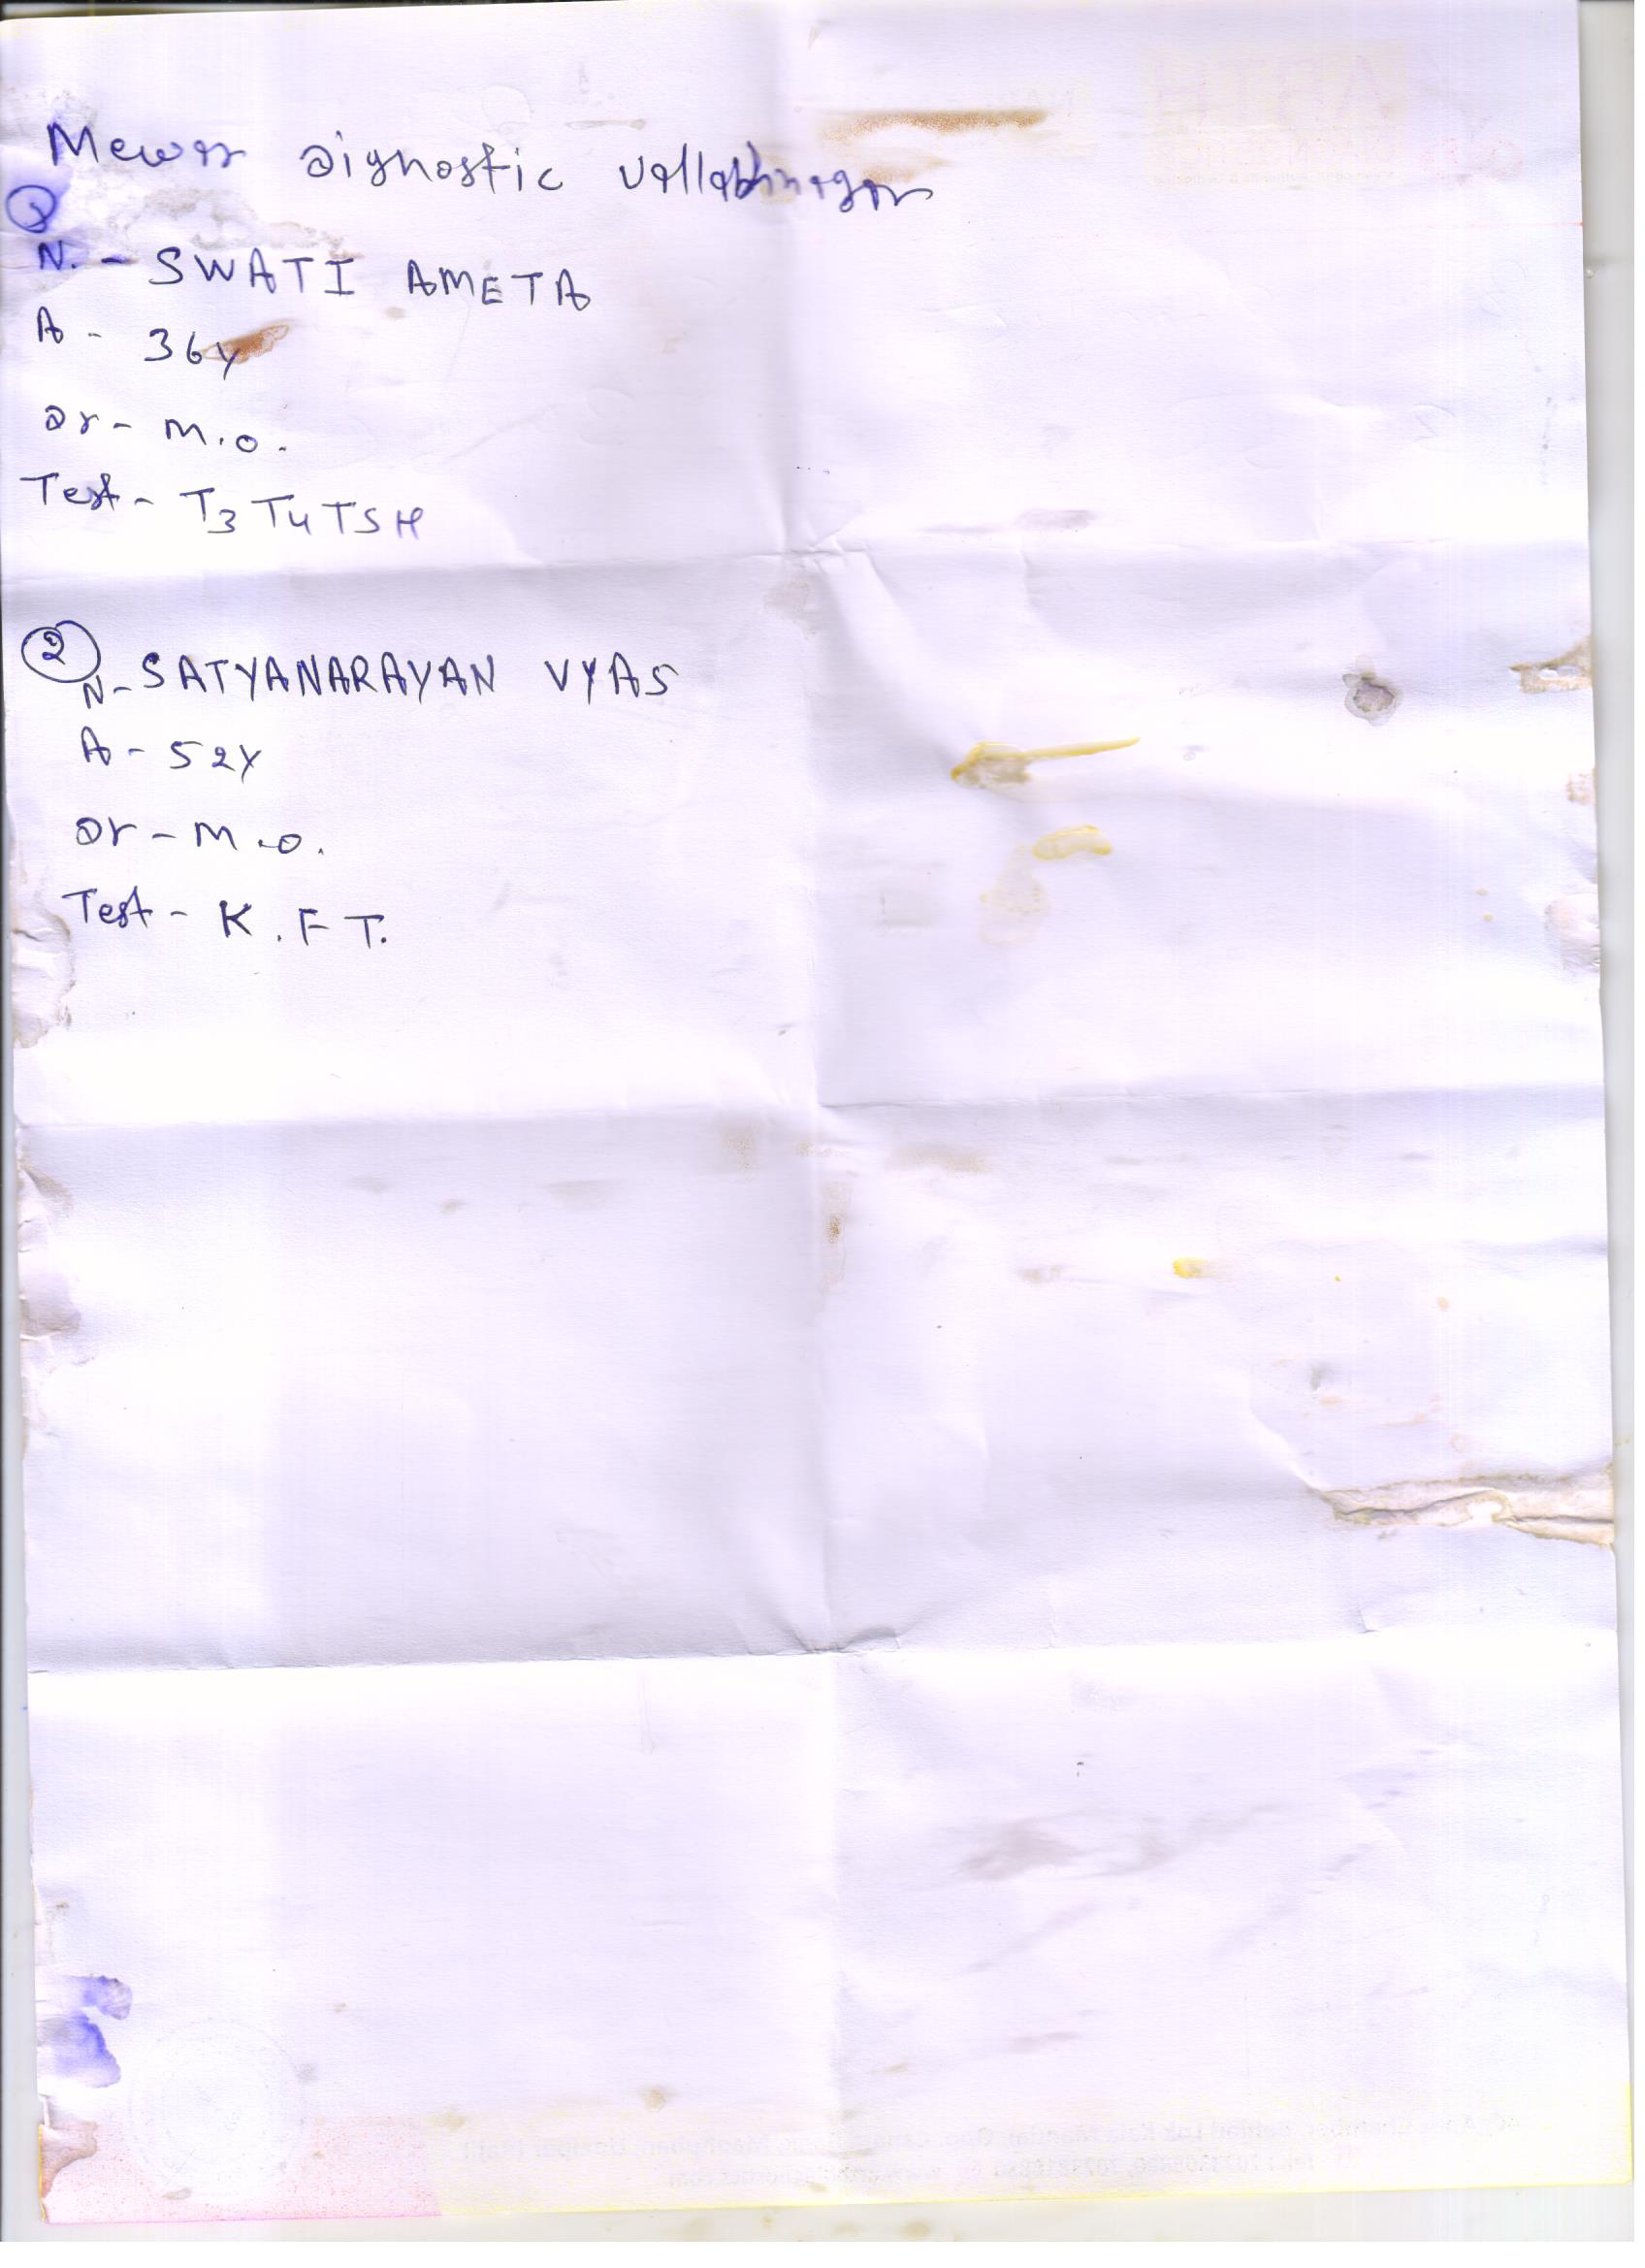 Mewar Dignostic Vallabhnagar
①
N. - SWATI AMETA
A - 36Y
Dr - M.O.
Test - T3 T4 TSH
②
N - SATYANARAYAN VYAS
A - 52Y
Dr - M.O.
Test - K.F.T.